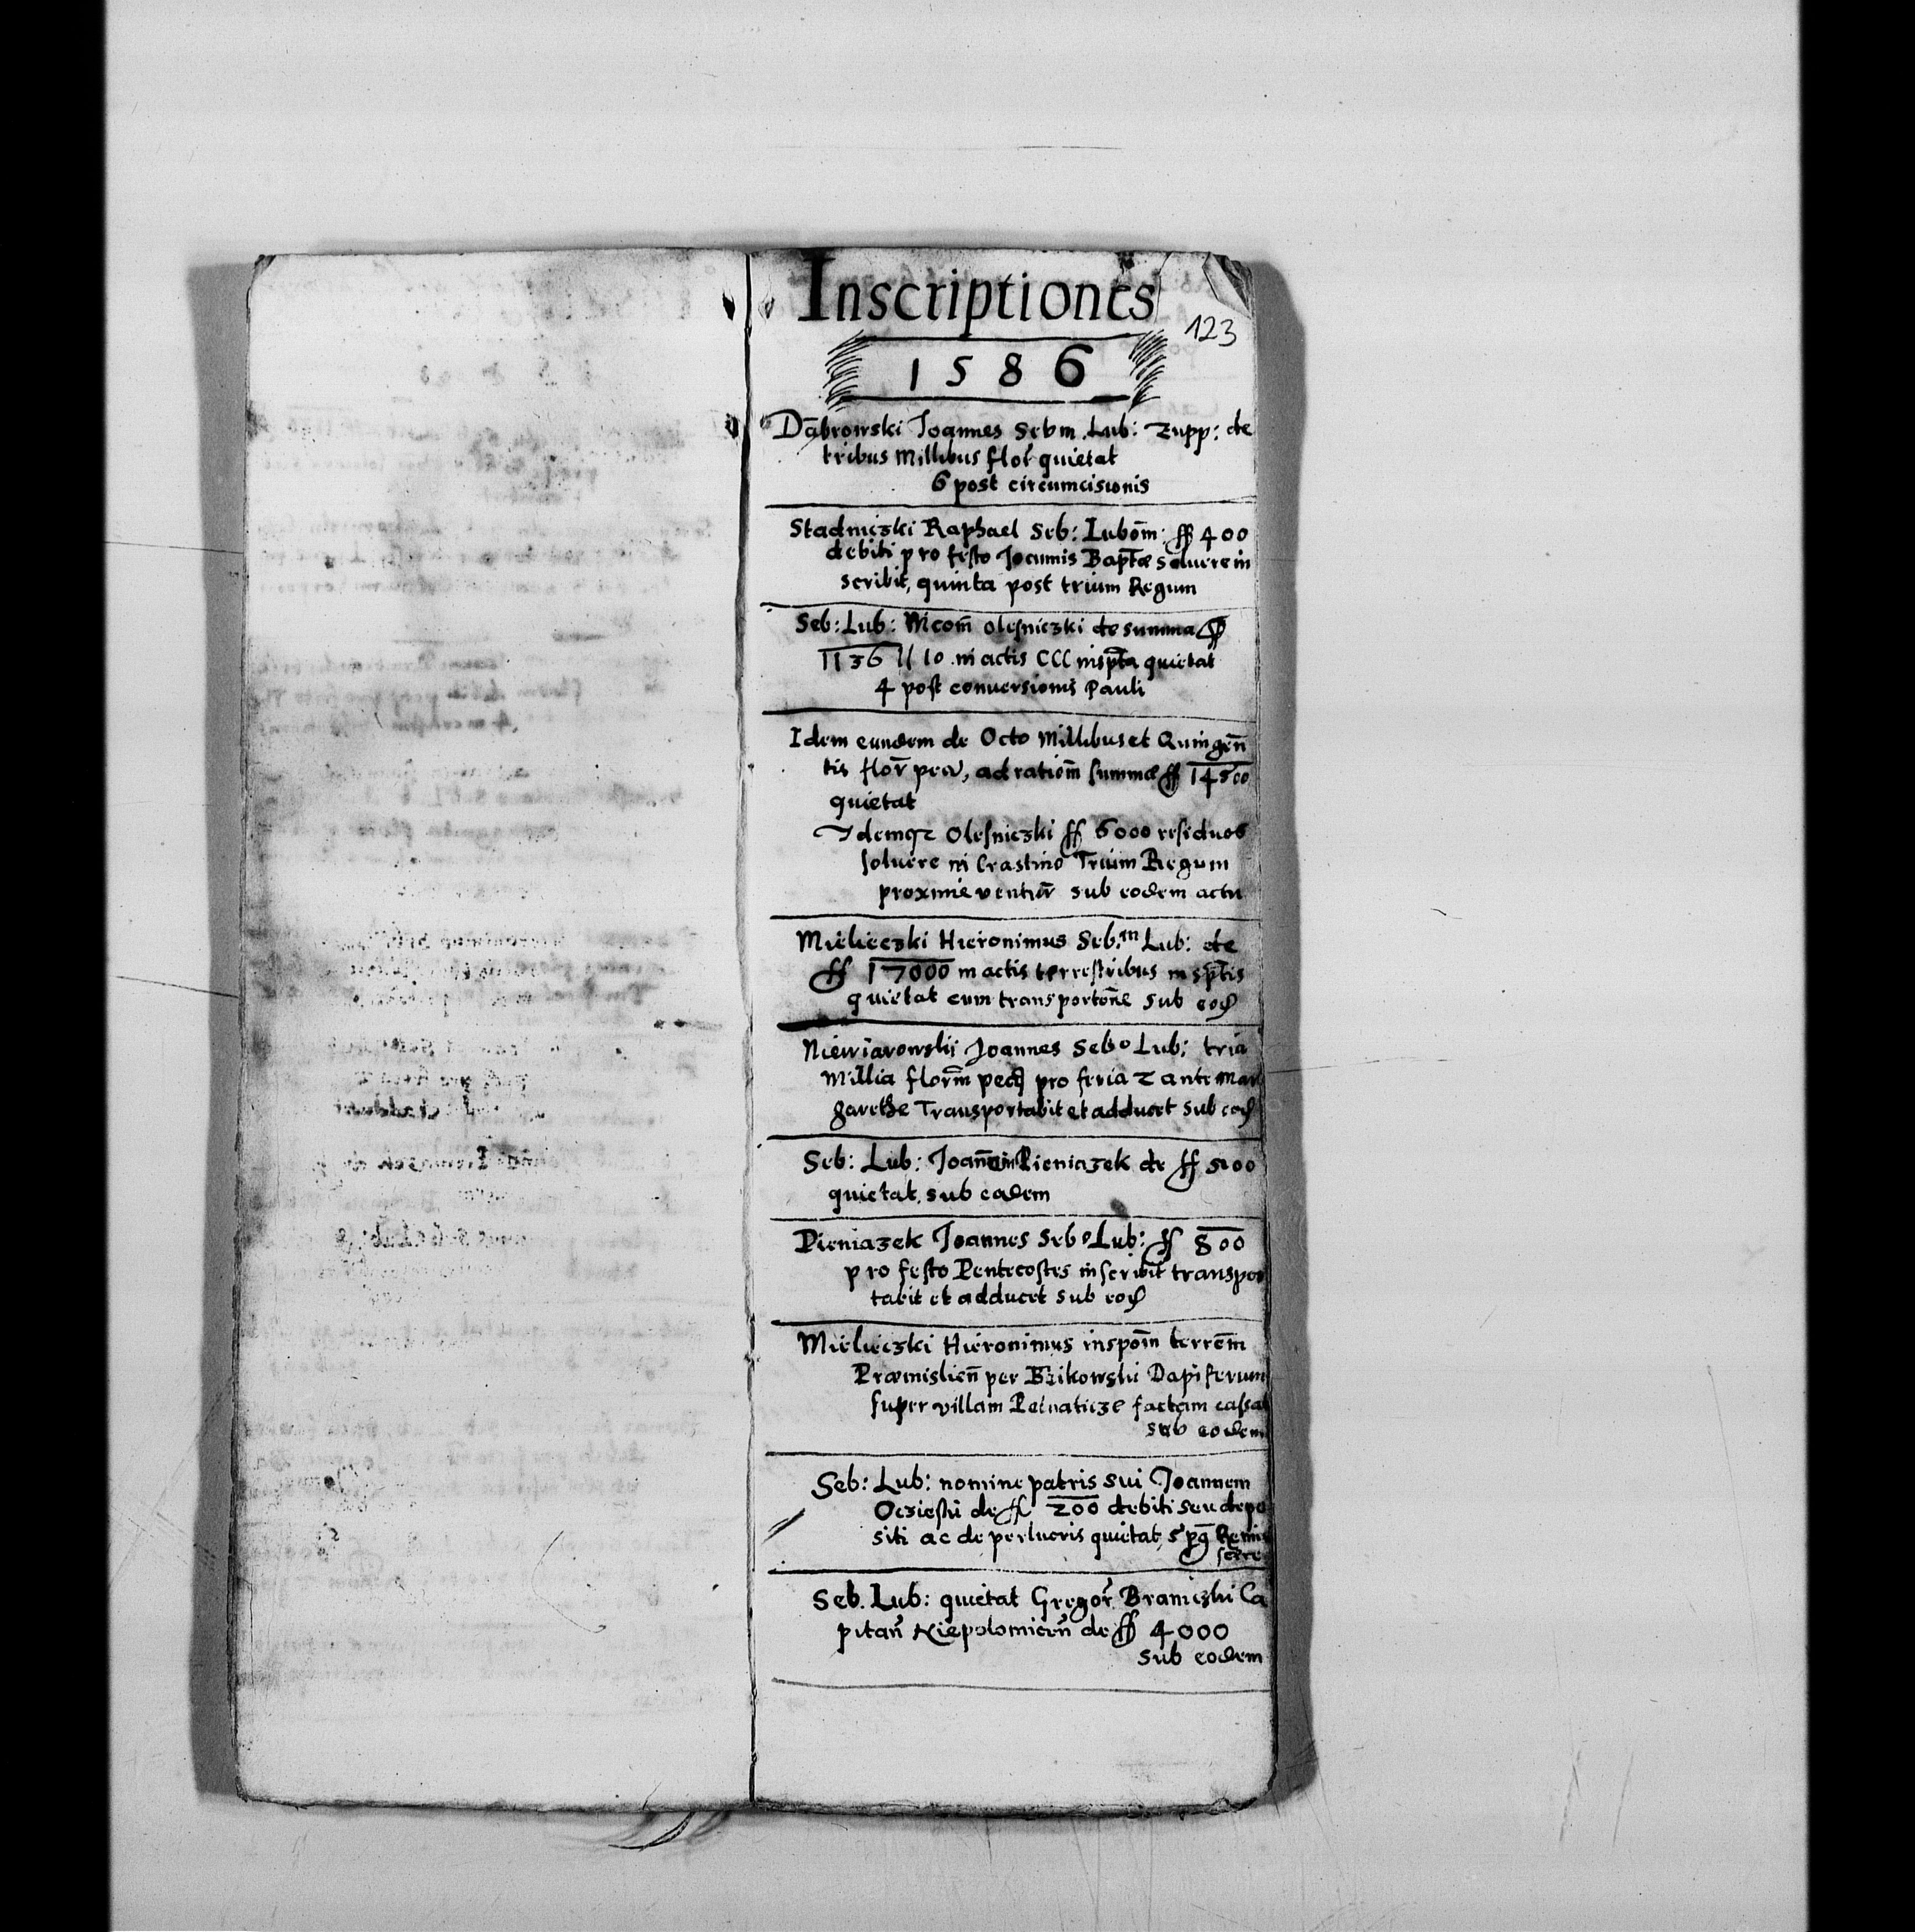 Inscriptiones
123
1586
Dābrowski Joannes Sebm. Lub: Zupp: de
tribus Millibus flor̄ quietat
6 post circumcisionis
Stadniczki Raphael Seb: Lubom̄: ff 400
debiti pro festo Joannis Bapt̄æ soluere in
scribit, quinta post trium Regum
Seb: Lub: Nicom̄ Olesniczki de summa ff
1136 11 10 in actis CCC inspt̄a quietat
4 post conuersionis Pauli
Idem eundem de Octo Millibus et Quingen̄
tis flor̄ pecu, ad ratiom̄ summæ ff 14500
quietat
Idemqz Olesniczki ff 6000 residuos
soluere in Crastino Trium Regum
proxime ventur̄ sub eodem actu
Mielieczki Hieronimus Seb.m Lub: de
ff 17000 in actis terrestribus inspt̄is
quietat cum transporton̄e sub eod
Niewiarowskij Joannes Sebo Lub: tria
Millia florm̄ pecu pro feria 2 ante Mar
garethe Transportabit et adducet sub eod
Seb: Lub: Joan̄em Pieniazek de ff 500
quietat, sub eadem
Pieniazek Joannes Sebo Lub: ff 800
pro festo Pentecostes inscribit transpor
tabit et adducet sub eod
Mieliczki Hieronimus inspom̄ terrem̄
Præmislien̄ per Bzikowski Dapiferum
super villam factam cassat
sub eodem
Seb: Lub: nomine patris sui Joannem
Oczieski de ff 200 debiti seu depo
siti ac de perlucris quietat, 5 pq Remi
scere
Seb. Lub: quietat Gregor̄ Braniczki Ca
pitan̄ Niepolomicen̄ de ff 4000
sub eodem